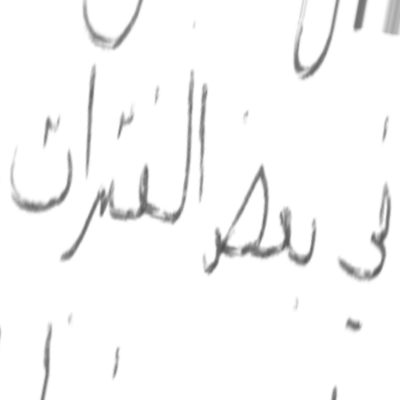 في بعض الفترات